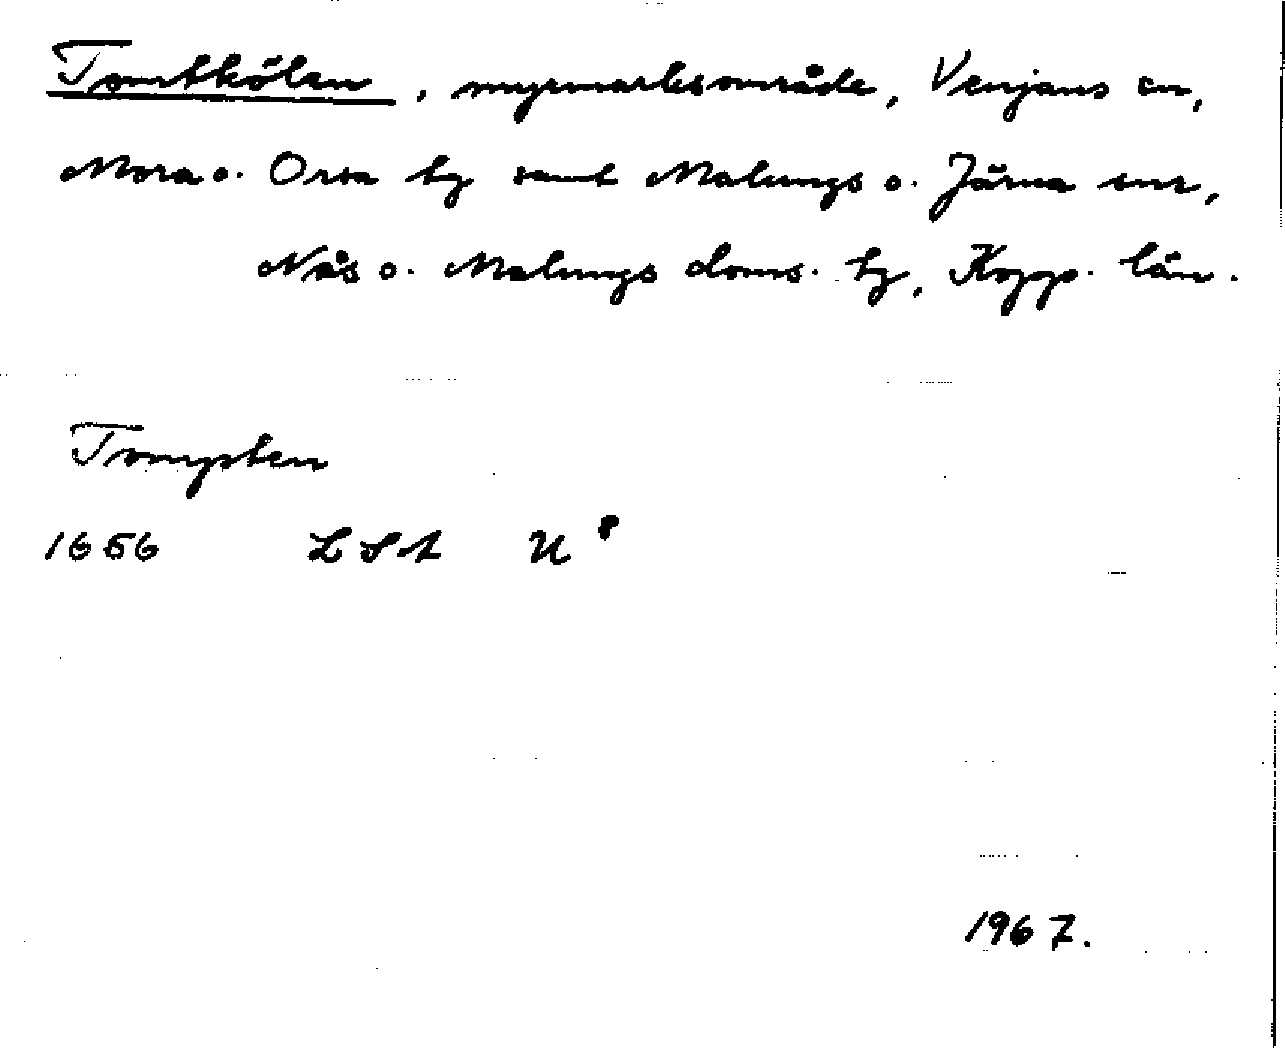 Tomtkölen, myrmarksområde, Venjans sn,
Mora o. Orsa hg samt Malungs o. Järna snr,
Nås o. Malungs doms. hg, Kopp. län.
Tompten
1656 LSA U⁸
1967.